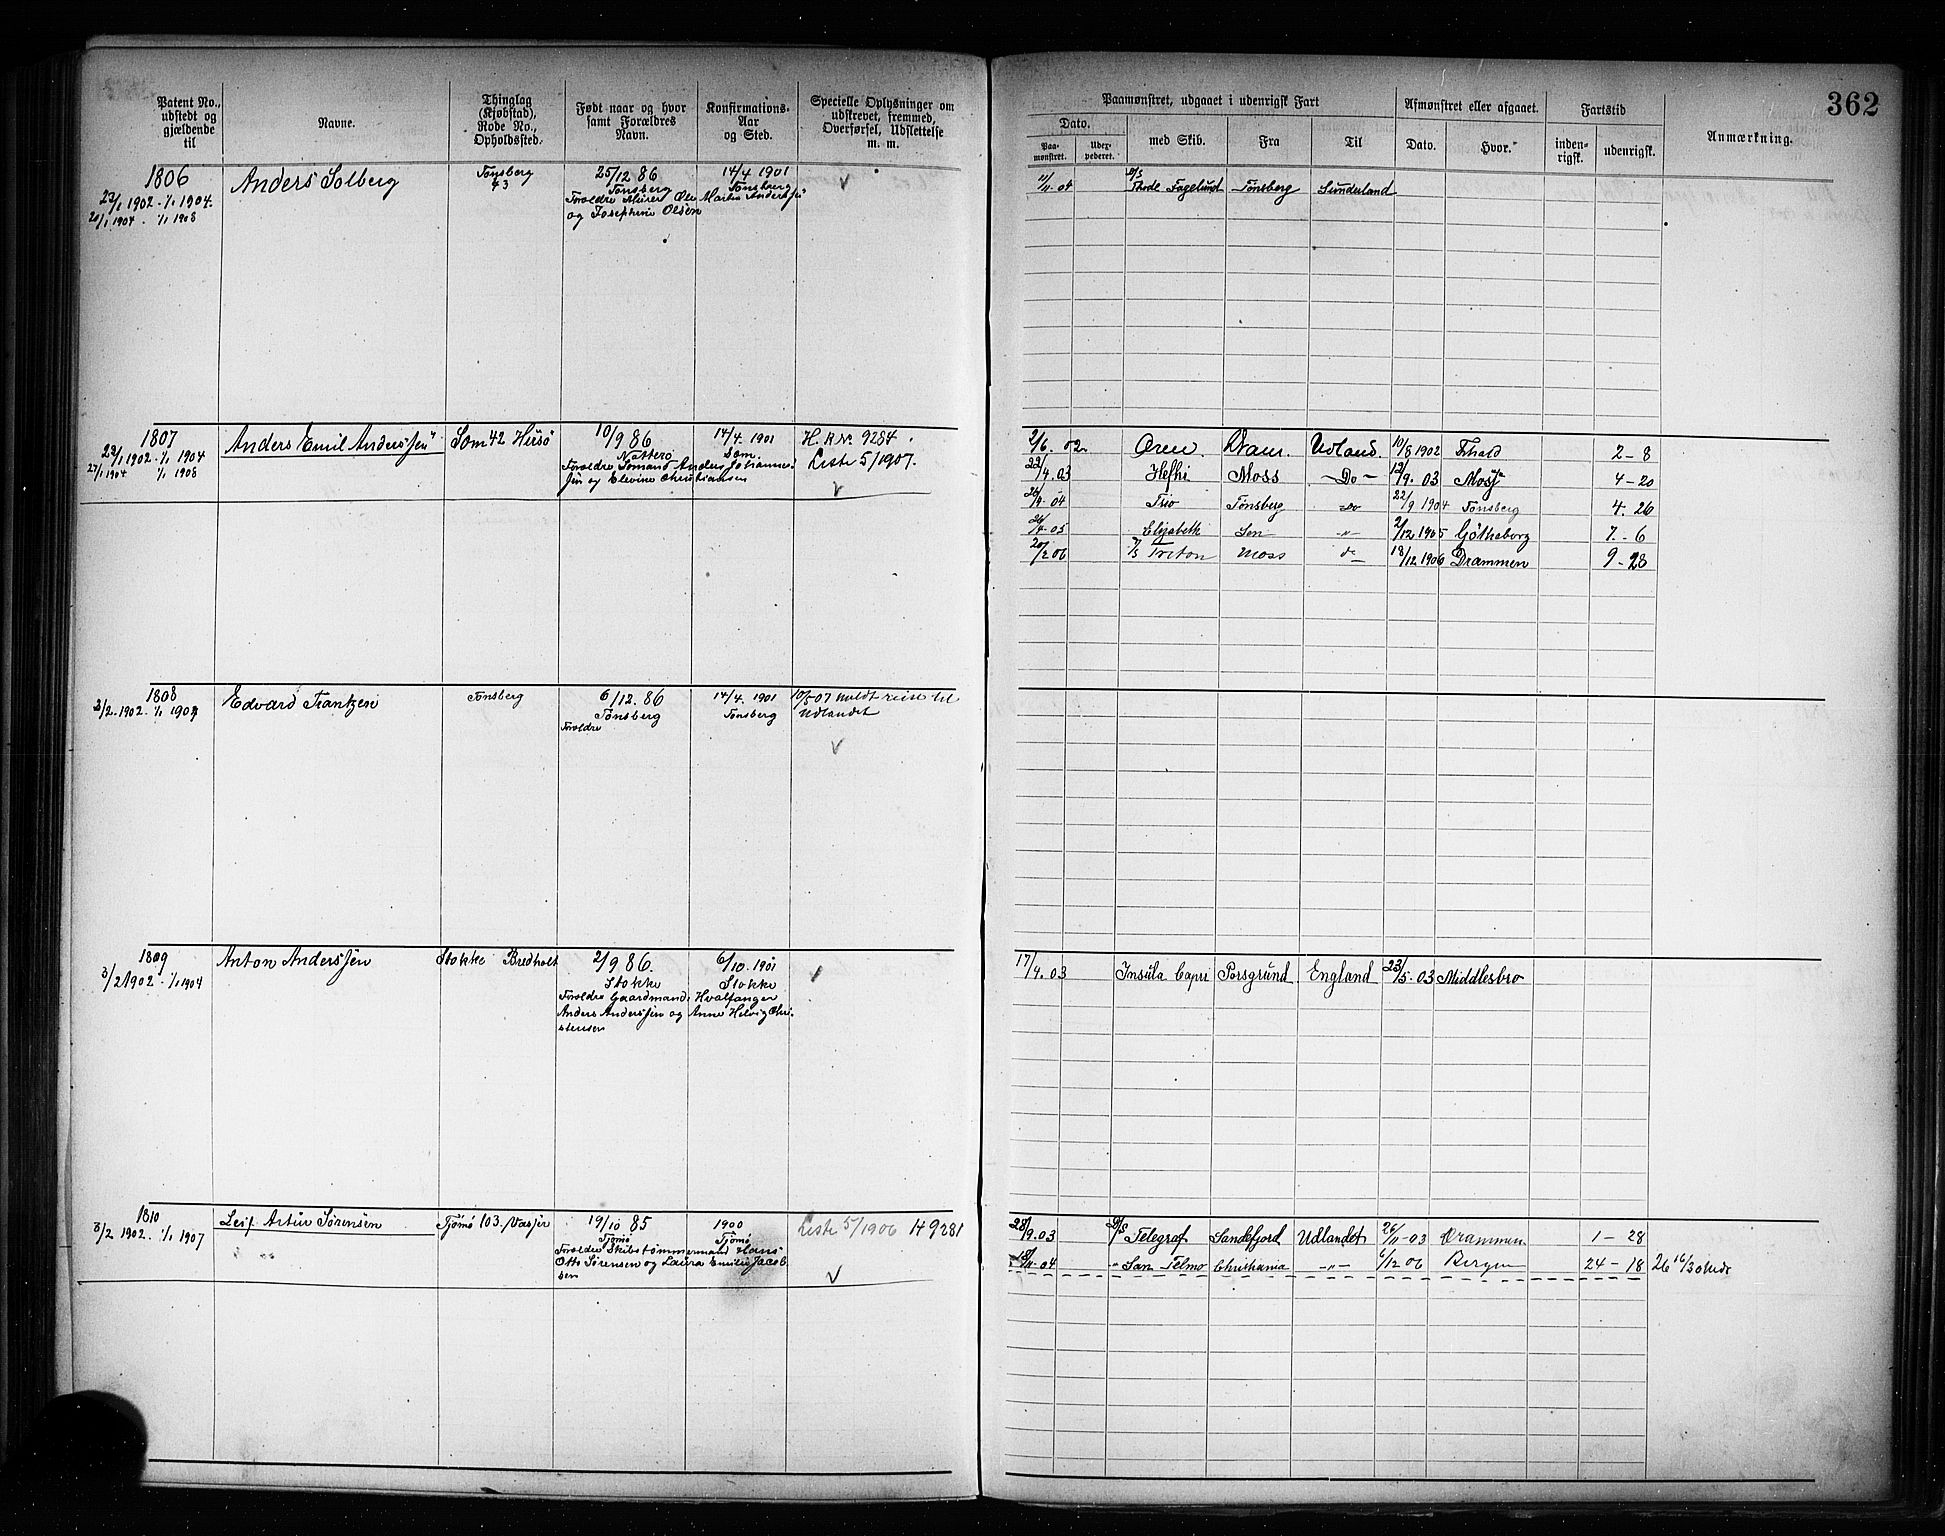 362
Patent No., udstedt og gjældende til
Navne.
Thinglag (Kjøbstad), Rode No., Opholdssted.
Født naar og hvor samt Forældres Navn.
Konfirmations-Aar og Sted.
Specielle Oplysninger om udstrevet, fremmed, Overførsel, Udslettelse m. m.
Paamønstret, udgaaet i udenrigsk Fart
Afmønstret eller afgaaet.
Fartstid
Anmærkning.
Dato.
Paa-mønstret.
Udex-pederet.
med Skib.
Fra
Til
Dato.
Hvor.
inden-rigsk.
udenrigsk.
1806
22/1 1902 - 1/1 1904.
1904 - 1/1 1908
Anders Solberg
Tønsberg
43
25/12 86
Tønsberg
Foreldre Murer Ole Martin Anderssen
og Josephine Olsen
14/4 1901
Tønsberg
11/11 04
D/S Thode Fagelund
Tønsberg
Sunderland
1807
22/1 1902 - 1/1 1904
27/1 1904 1/1 1908
Anders Emil Anderssen
Sem 42 Husø
10/9 86
Nøtterø
Foreldre Sømand Anders Johannes-
sen og Elevine Christiansen
14/4. 1901
Sem
H. R No. 9284.
Liste 5/1907.
2/6. 02 Ørnen Udland 10/8 1902 2-8
22/4.03 Moss Do 12/9. 03 Moss 4-20
04 Trio Tønsberg do 22/9 1904 Tønsberg 4. 26
05 Elizabeth Sem " 2/12 1905 Gøtheborg 7. - 6
20/2 06 D/S Triton Moss do 18/12 1906 Drammen 9-28
1808
3/2. 1902 - 1/1 1904
Edvard Frantzen
Tønsberg
6/12. 86
Tønsberg
Foreldre
14/4. 1901
Tønsberg
10/5 07 meldt reise til
Udlandet
1809
3/2 1902 - 1/1 1904
Anton Anderssen
Stokke Bredholt
2/9 86.
Stokke
Foreldre Gaardmand, Hvalfanger
Anders Anderssen og Anne Helvig Chri-
stensen
6/10. 1901
Stokke
17/4.03 Insula Capri Porsgrund England 23/5. 03 Middlesbro
1810
3/2 1902. 1/1 1907
Leif Artur Sørensen
Tjømø 103.
19/10 85
Tjømø
Foreldre Skibstømmermand Hans
Otto Sørensen og Laura Emilie Jacob-
sen
1900
Tjømø
Liste 5/1906 H 9281
28/9.03 D/S Telegraf Sandefjord Udlandet 26/11-03 Drammen 1-28
18/11-04 " San Telmo Christiania " 6/12 06 Bergen 24-18